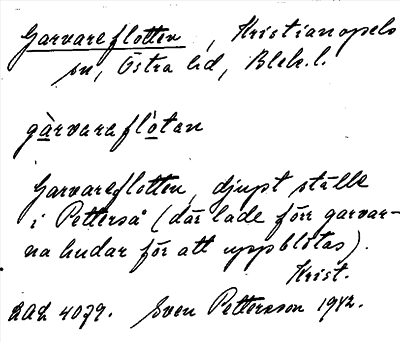 Garvareflotten, Kristianopels
sn, Östra hd, Blek. l.
gàrvareflòtan
Garvareflotten, djupt ställe
i Petterså (där lade förr garvar-
na hudar för att uppblötas).
Krist.
4079. Sven Pettersson 1942.